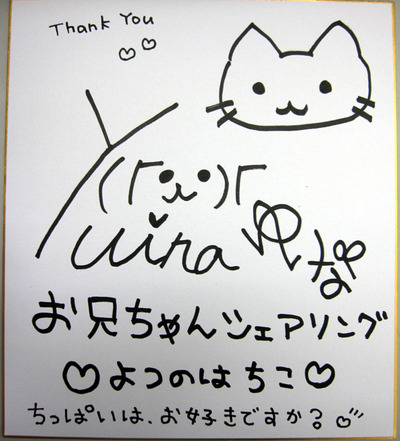 Thank You
(「・ᴗ・)「
yuina ゆな
お兄ちゃんシェアリング
♡よつのはちこ♡
ちっぱいは、お好きですか?